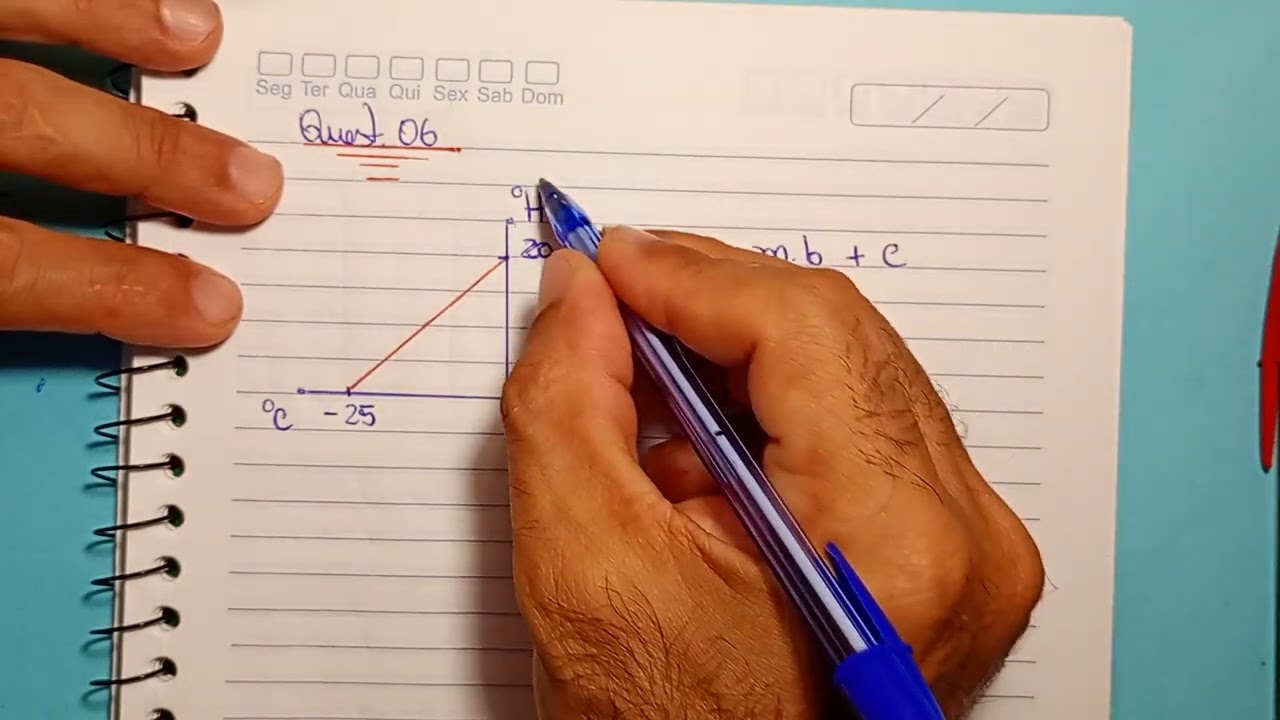 Seg Ter Qua Qui Sex Sab Dom
Quest. 06
°H
20
m.b + c
°C -25